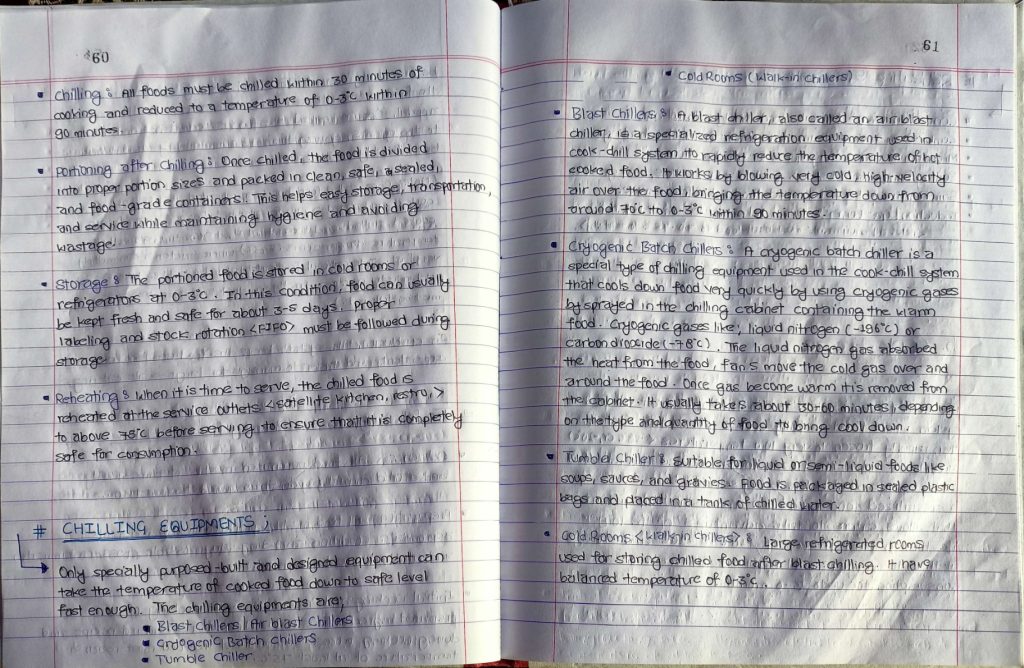 60
• Chilling : All foods must be chilled within 30 minutes of
cooking and reduced to a temperature of 0-3°C within
90 minutes.
• Portioning after Chilling : Once chilled, the food is divided
into proper portion sizes and packed in clean, safe, sealed,
and food-grade containers. This helps easy storage, transportation,
and service while maintaining hygiene and avoiding
wastage.
• Storage : The portioned food is stored in cold rooms or
refrigerators at 0-3°C. In this condition, food can usually
be kept fresh and safe for about 3-5 days. Proper
labeling and stock rotation <FIFO> must be followed during
storage.
• Reheating : When it is time to serve, the chilled food is
reheated at the service outlets <satellite kitchen, restro,>
to above 75°C before serving to ensure that it is completely
safe for consumption.
# CHILLING EQUIPMENTS ;
Only specially purposed-built and designed equipment can
take the temperature of cooked food down to safe level
fast enough. The chilling equipments are;
• Blast Chillers / Air blast Chillers
• Cryogenic Batch Chillers
• Tumble Chiller
61
• Cold Rooms (Walk-in Chillers)
• Blast Chillers : A blast chiller, also called an air blast
chiller, is a specialized refrigeration equipment used in
cook-chill system to rapidly reduce the temperature of hot
cooked food. It works by blowing very cold, high-velocity
air over the food, bringing the temperature down from
around 70°C to 0-3°C within 90 minutes.
• Cryogenic Batch Chillers : A cryogenic batch chiller is a
special type of chilling equipment used in the cook-chill system
that cools down food very quickly by using cryogenic gases
by sprayed in the chilling cabinet containing the warm
food. Cryogenic gases like; liquid nitrogen (-196°C) or
carbon dioxide (-78°C). The liquid nitrogen gas absorbed
the heat from the food, fan's move the cold gas over and
around the food. Once gas become warm it is removed from
the cabinet. It usually takes about 30-60 minutes, depending
on the type and quantity of food to bring cool down.
• Tumble Chiller : Suitable for liquid or semi-liquid foods like
soups, sauces, and gravies. Food is packaged in sealed plastic
bags and placed in a tanks of chilled water.
• Cold Rooms <Walk-in chillers> : Large refrigerated rooms
used for storing chilled food after blast chilling. It have
balanced temperature of 0-3°C.